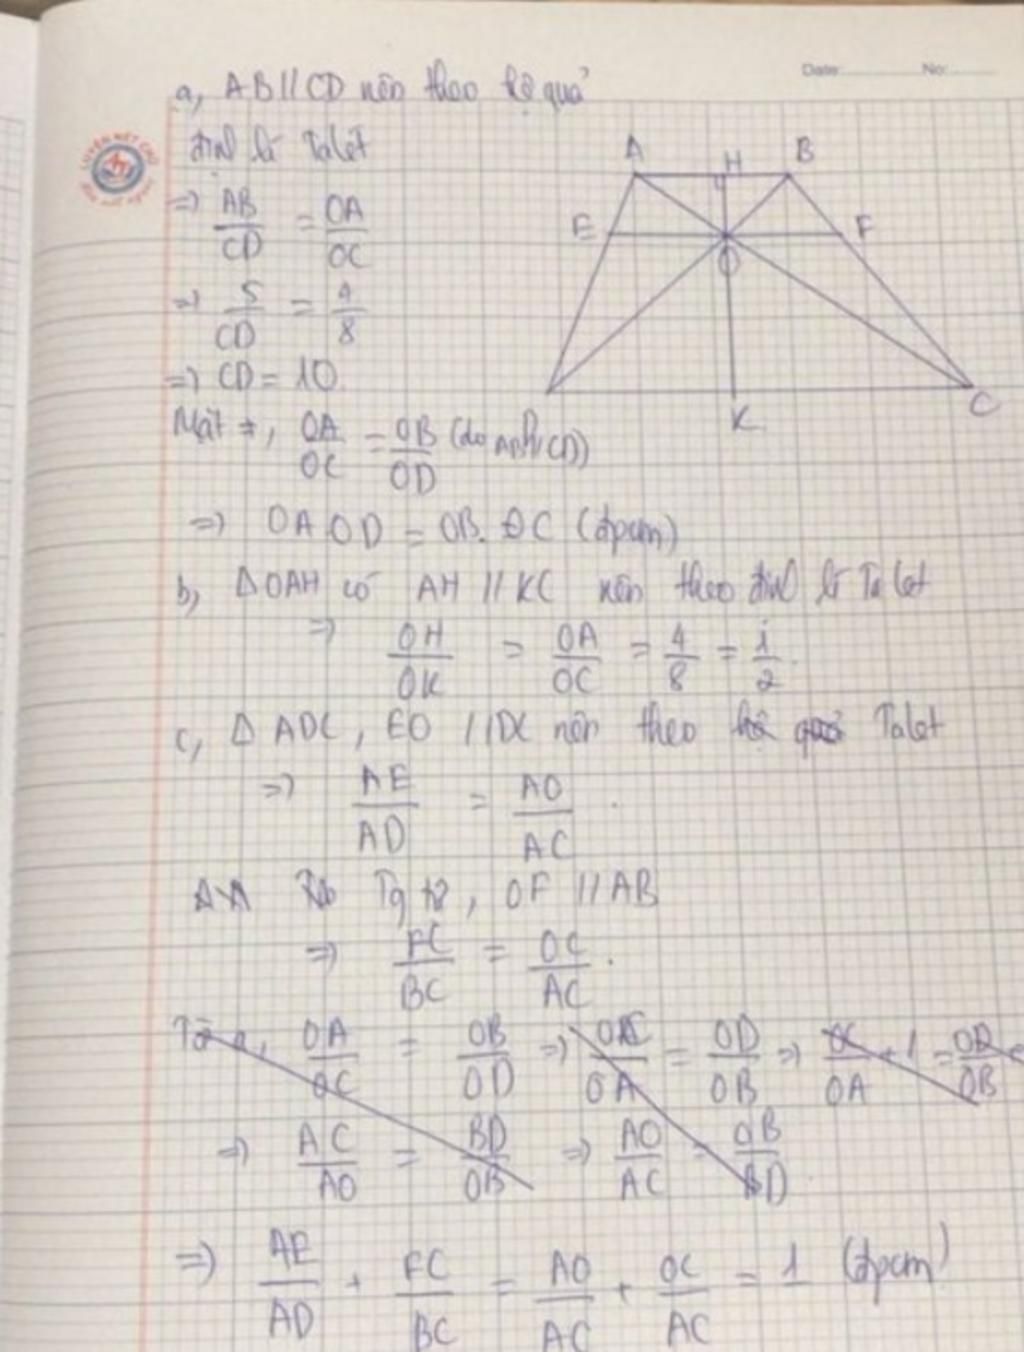 Date: No:
a, AB // CD nên theo hệ quả
định lí Talét
A H B
=> AB/CD = OA/OC
E F
O
=> 5/CD = 4/8
=> CD = 10
K C
Mặt ≠, OA/OC = OB/OD (do AB//CD)
=> OA.OD = OB.OC (đpcm)
b, Δ OAH có AH // KC nên theo định lí Ta let
=> OH/OK = OA/OC = 4/8 = 1/2.
c, Δ ADC, EO // DC nên theo hệ quả Talet
=> AE/AD = AO/AC.
Tg tự, OF // AB
=> FC/BC = OC/AC.
Từ a, OA/OC = OB/OD => OC/OA = OD/OB => OC/OA + 1 = OD/OB
=> AC/AO = BD/OB => AO/AC = OB/BD
=> AE/AD + FC/BC = AO/AC + OC/AC = 1 (đpcm)